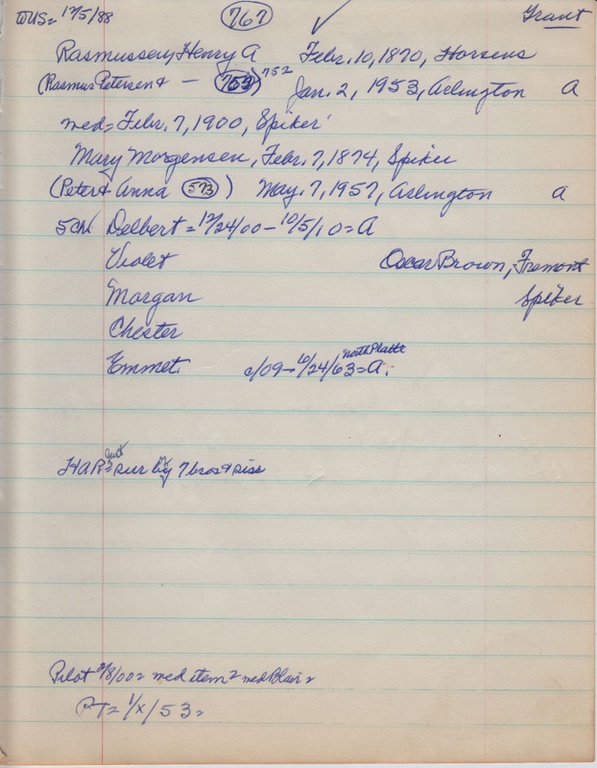 WUS = 12/5/88 767 Grant
Rasmussen, Henry A Febr. 10, 1870, Horsens
(Rasmus Petersen & — 753) 752 Jan. 2, 1953, Arlington A
med = Febr. 7, 1900, Spiker
Mary Morgensen, Febr. 7, 1874, Spiker
(Peter & Anna 573) May. 7, 1957, Arlington a
5 CH Delbert = 12/24/00 – 10/5/10 = A
Violet Oscar Brown, Fremont
Morgan Spiker
Chester
Emmet c/09 – 6/24/63 = A. North Platte
HAR = sur by 7 bros & siss
Pilot 3/8/00 = med item = med Blair =
PT = 1/x/53 =